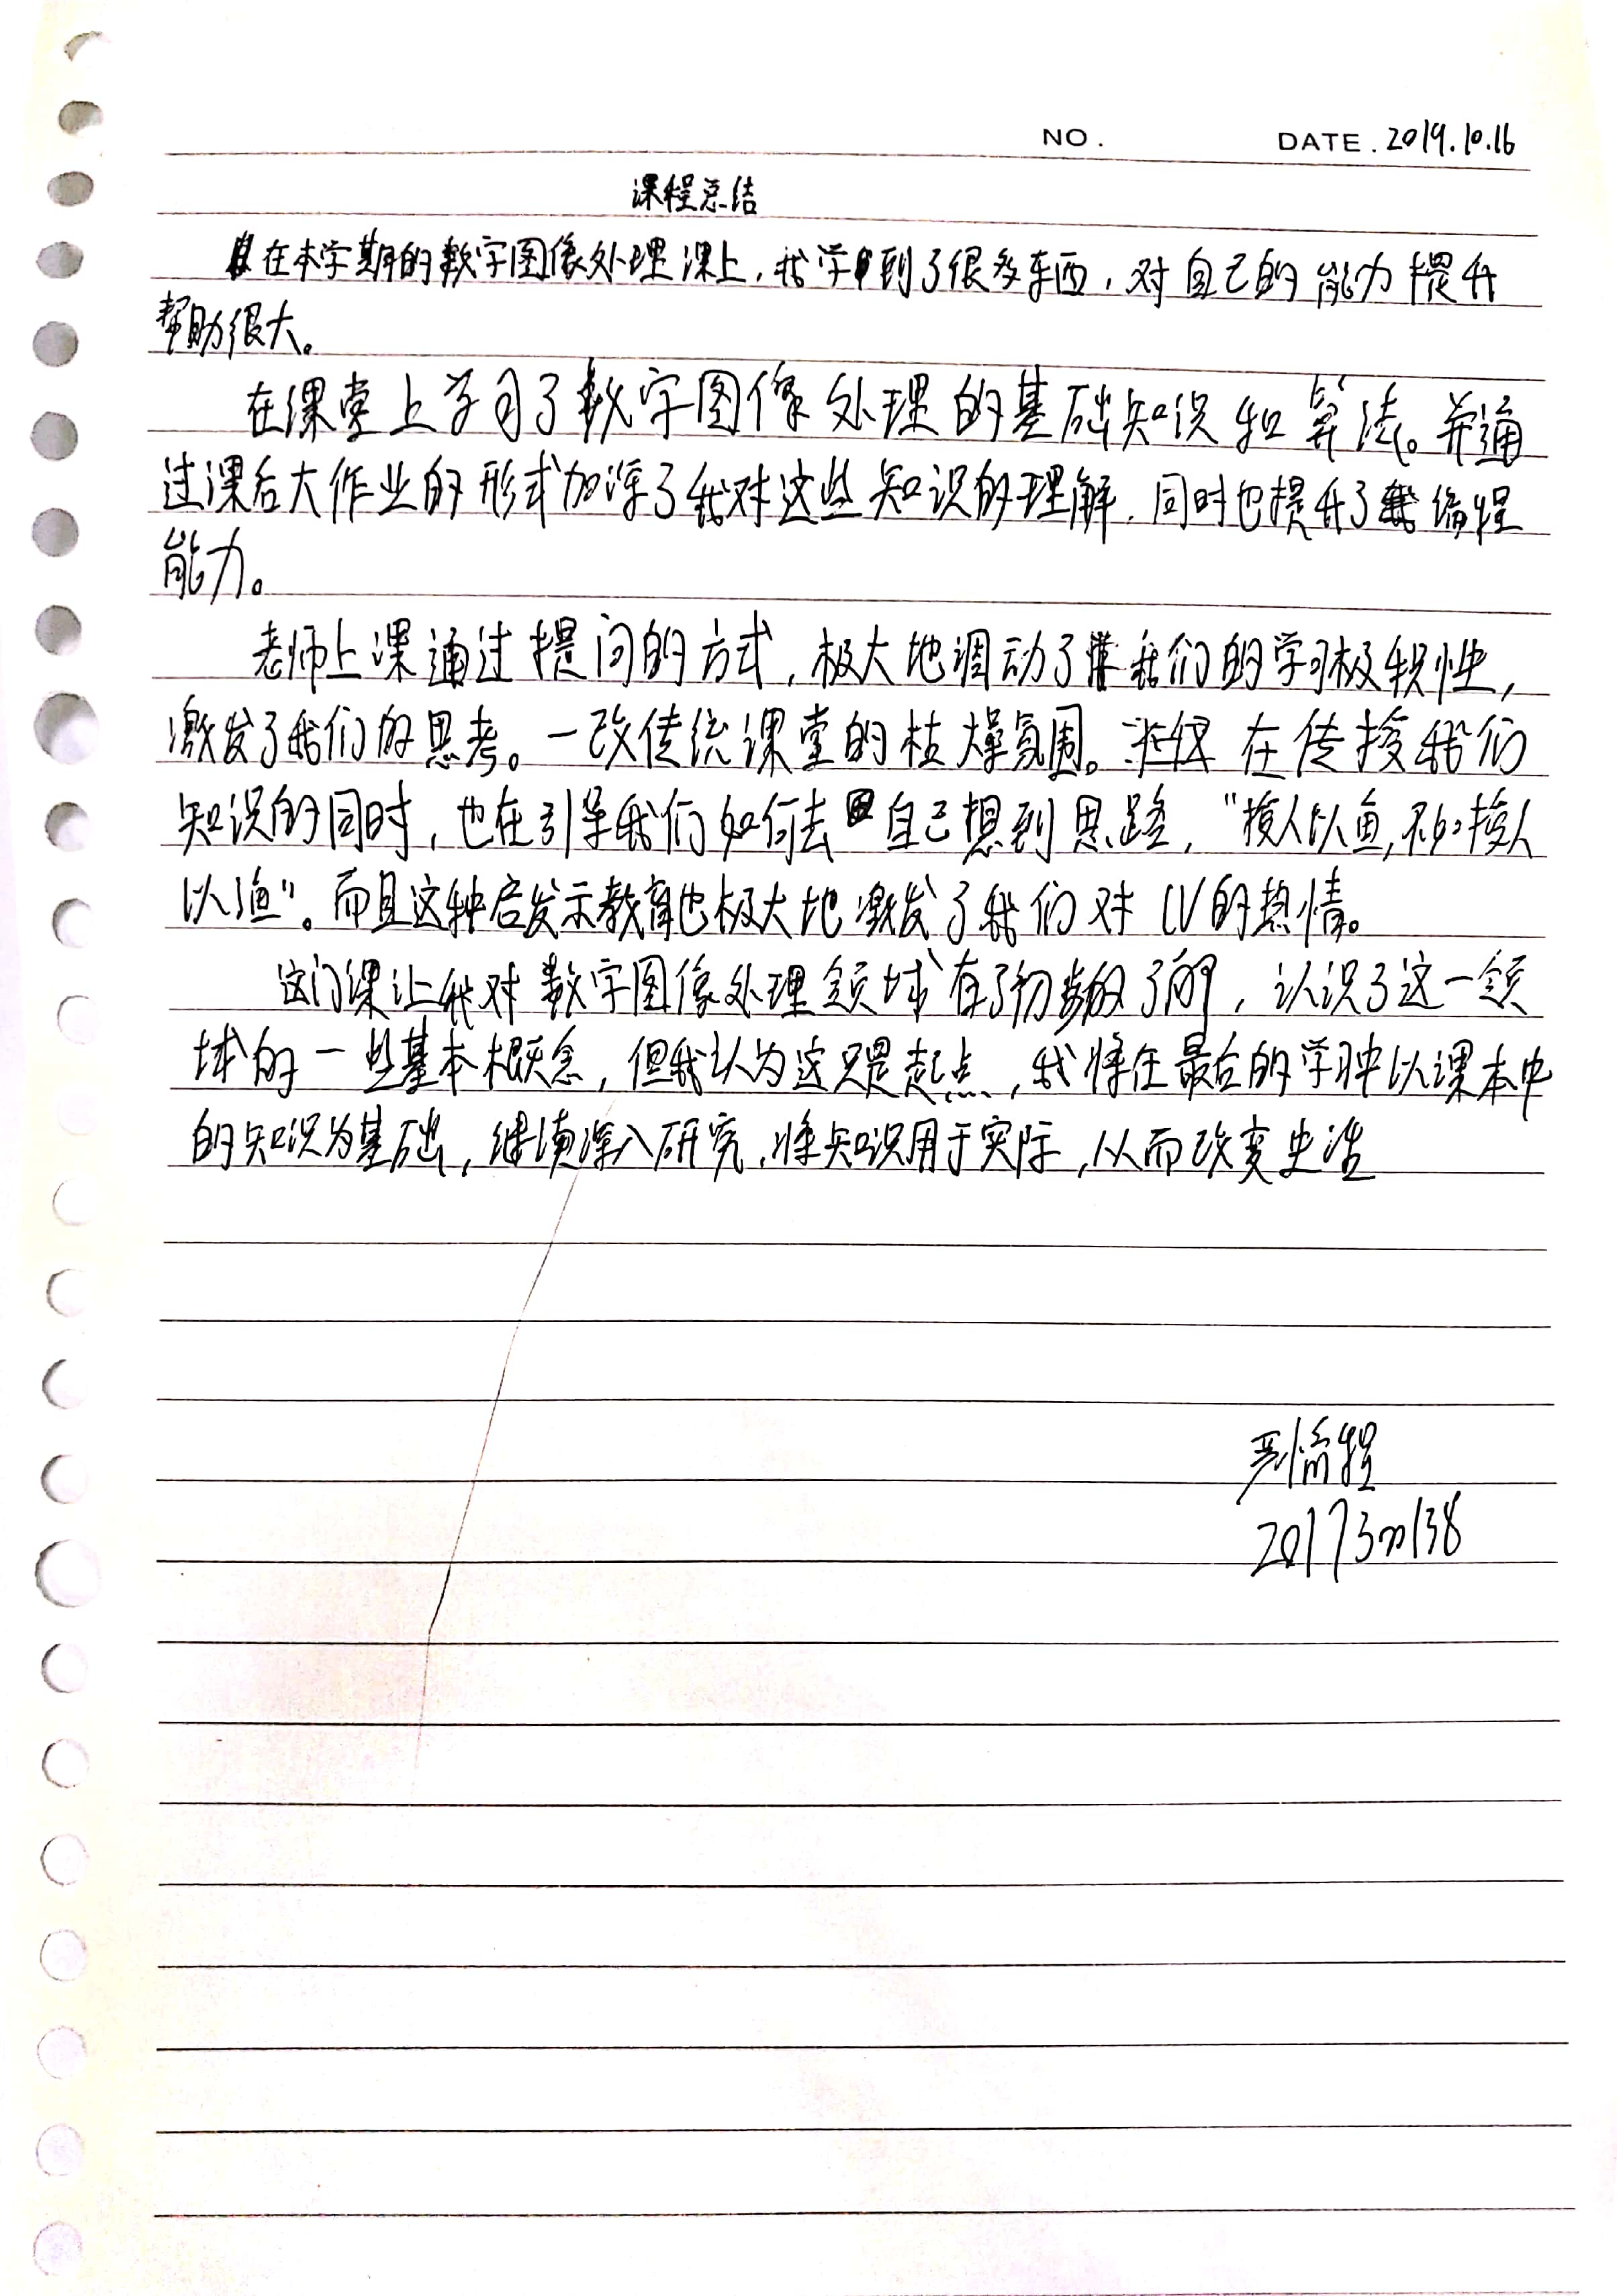 NO. DATE. 2019.10.16
课程总结
在本学期的数字图像处理课上，我学到了很多东西，对自己的能力提升
帮助很大。
在课堂上学习了数字图像处理的基础知识和算法。并通
过课后大作业的形式加深了我对这些知识的理解，同时也提升了我编程
能力。
老师上课通过提问的方式，极大地调动了我们的学习极积性，
激发了我们的思考。一改传统课堂的枯燥氛围。在传授我们
知识的同时，也在引导我们如何去自己想到思路，“授人以鱼，不如授人
以渔”。而且这种启发示教育也极大地激发了我们对CV的热情。
这门课让我对数字图像处理领域有了初步的了解，认识了这一领
域的一些基本概念，但我认为这只是起点，我将在最后的学习中以课本中
的知识为基础，继续深入研究，将知识用于实际，从而改变生活